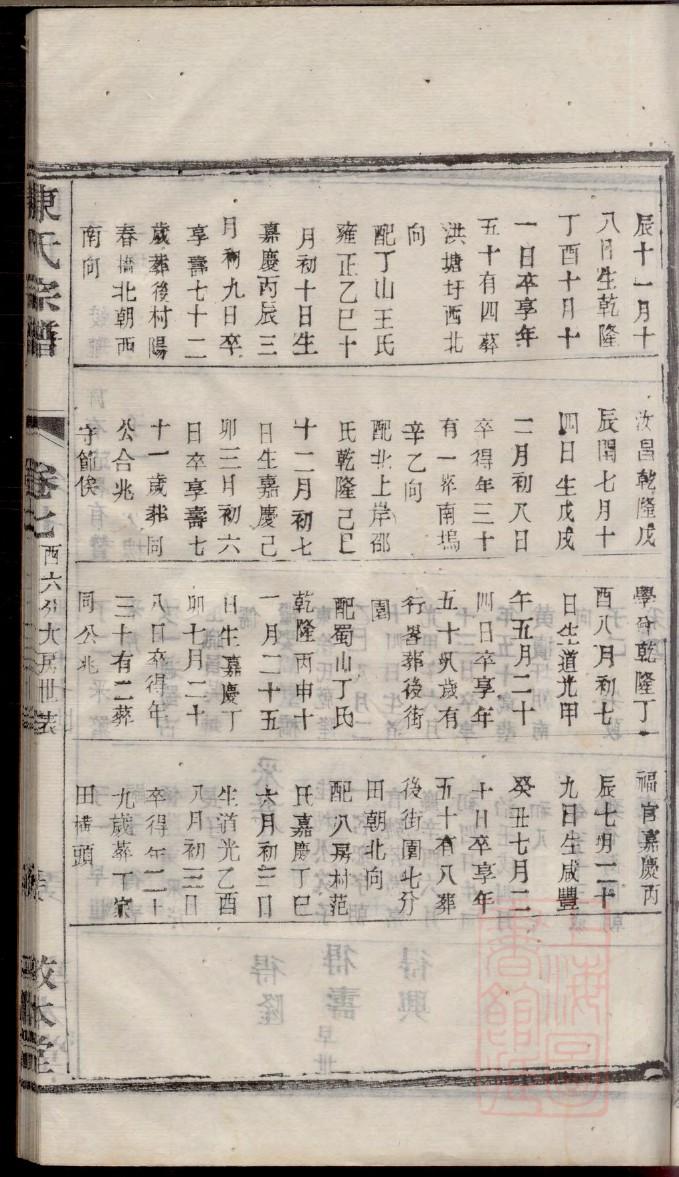 辰十一月十
八日生乾隆
丁酉十月十
一日卒享年
五十有四葬
洪塘圩西北
向
配丁山王氏
雍正乙巳十
月初十日生
嘉慶丙辰三
月初九日卒
享壽七十二
歲葬後村陽
春橋北朝西
南向
汝昌乾隆戊
辰閏七月十
四日生戊戌
二月初八日
卒得年三十
有一葬南塢
辛乙向
配北上岸邵
氏乾隆己巳
十二月初七
日生嘉慶己
卯三月初六
日卒享壽七
十一歲葬同
公合兆
守節俟
學 乾隆丁
酉八月初七
日生道光甲
午五月二十
四日卒享年
五十八歲有
行畧葬後街
園
配蜀山丁氏
乾隆丙申十
一月二十五
日生嘉慶丁
卯十月二十
八日卒得年
三十有二葬
同公兆
福官嘉慶丙
辰七月二十
九日生咸豐
癸丑七月二
十日卒享年
五十有八葬
後街園北分
田朝北向
配八房村范
氏嘉慶丁巳
六月初三日
生道光乙酉
八月初三日
卒得年二十
九歲葬丁家
田橫頭
陳氏宗譜
卷七
西六分大房世表
敘本堂